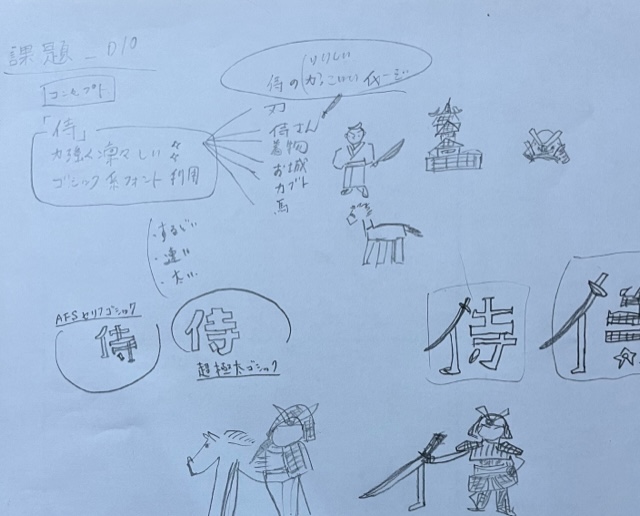 課題_010
コンセプト
「侍」
力強く凛々しい
ゴシック系フォント利用
侍の(りりしい
かっこいい)イメージ
刀
侍さん
着物
お城
カブト
馬
・するどい
・速い
・太い
AFSセリフゴシック
侍
侍
超極太ゴシック
侍